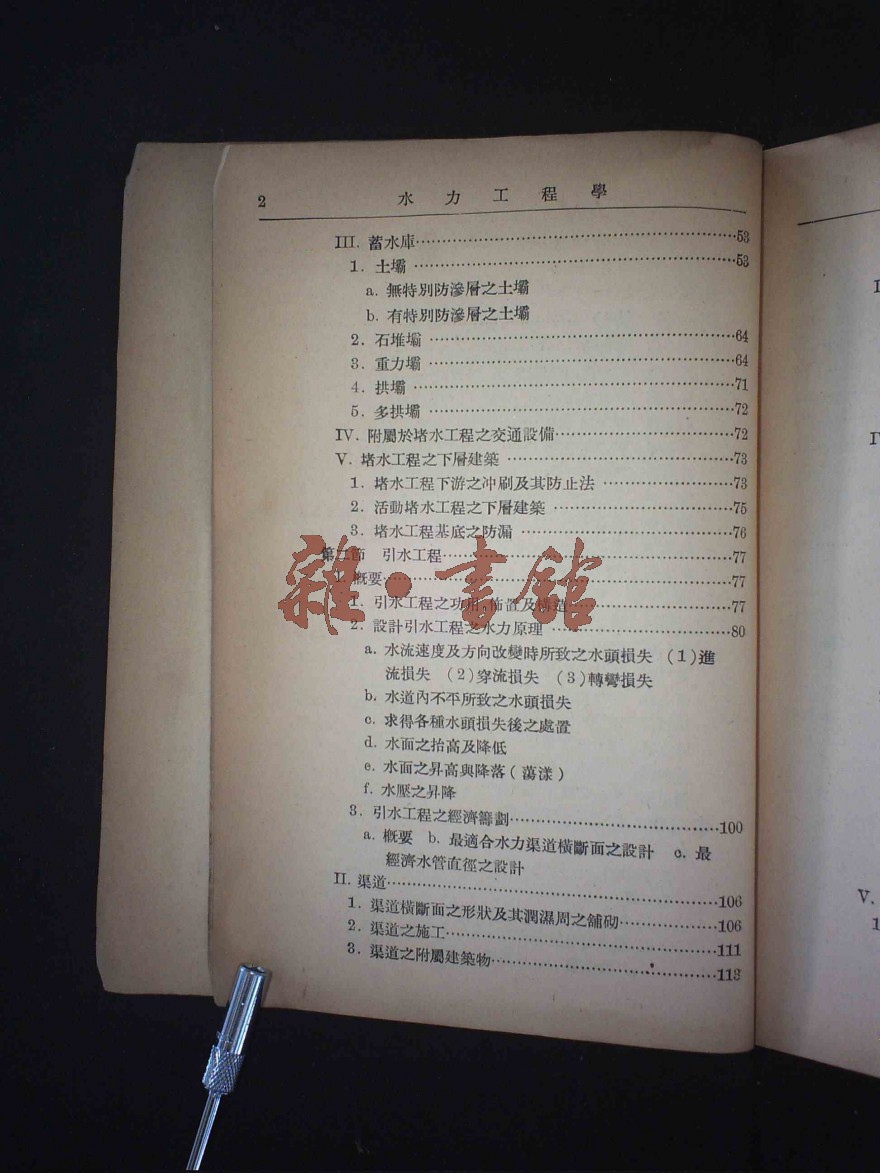 2 水力工程學
III. 蓄水庫……53
1. 土壩……53
a. 無特別防滲層之土壩
b. 有特別防滲層之土壩
2. 石堆壩……64
3. 重力壩……64
4. 拱壩……71
5. 多拱壩……72
IV. 附屬於堵水工程之交通設備……72
V. 堵水工程之下層建築……73
1. 堵水工程下游之冲刷及其防止法……73
2. 活動堵水工程之下層建築……75
3. 堵水工程基底之防漏……76
第二節 引水工程……77
I. 概要……77
1. 引水工程之功用,佈置及構造……77
2. 設計引水工程之水力原理……80
a. 水流速度及方向改變時所致之水頭損失 (1)進
流損失 (2)穿流損失 (3)轉彎損失
b. 水道內不平所致之水頭損失
c. 求得各種水頭損失後之處置
d. 水面之抬高及降低
e. 水面之昇高與降落(蕩漾)
f. 水壓之昇降
3. 引水工程之經濟籌劃……100
a. 概要 b. 最適合水力渠道橫斷面之設計 c. 最
經濟水管直徑之設計
II. 渠道……106
1. 渠道橫斷面之形狀及其潤濕周之舖砌……106
2. 渠道之施工……111
3. 渠道之附屬建築物……118
雜·書館
V.
1